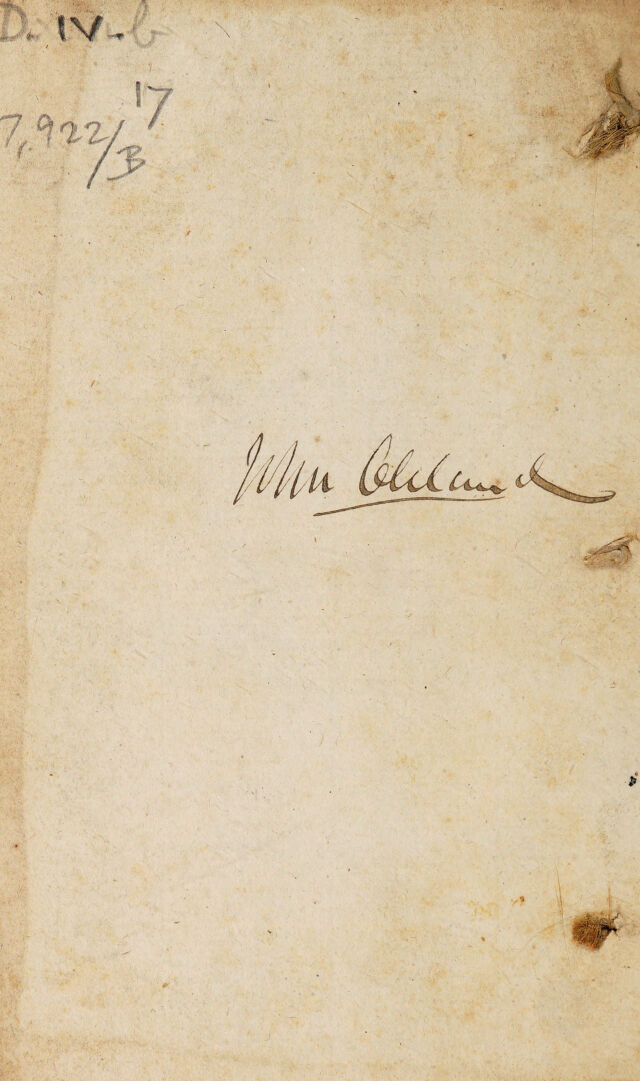 D. IV. b
17
7,922/B
John Cleland